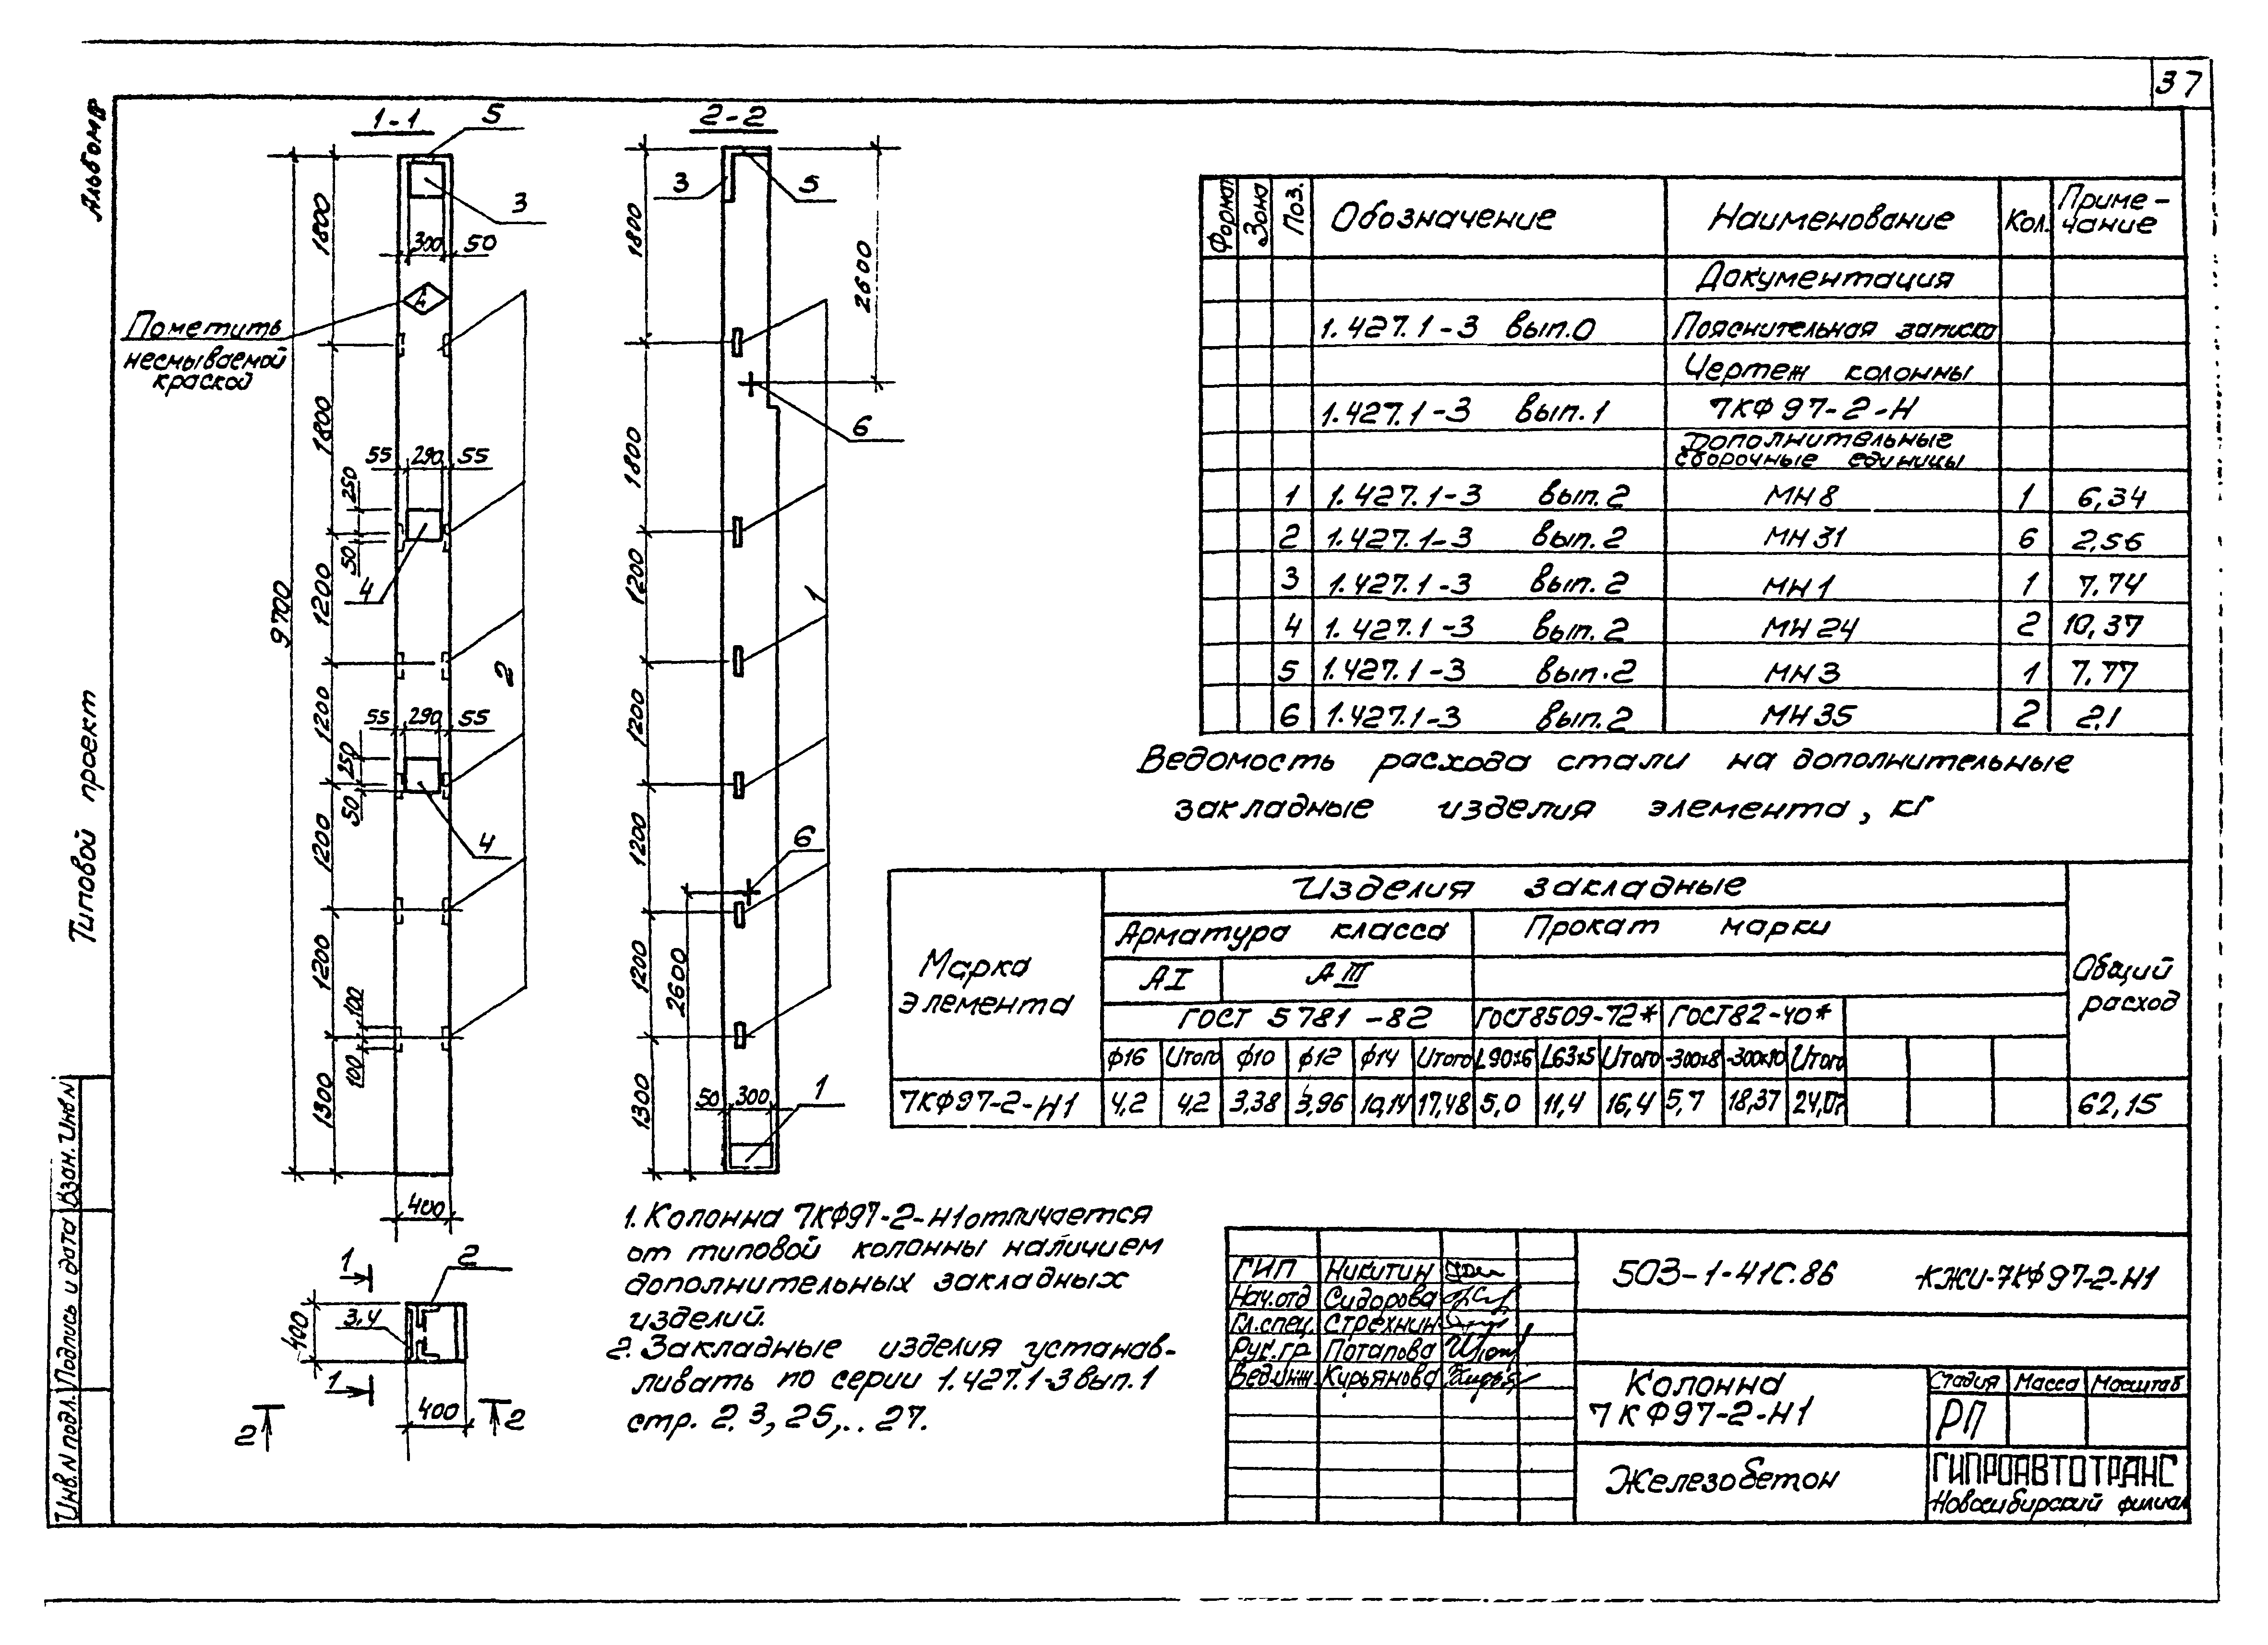 37
Альбом
Типовой проект
Инв.N подл. Подпись и дата Взам. Инв N
1-1
5
3
1800
300 50
4
Пометить
несмываемой
краской
1800
55 290 55
250
50
4
9700
1200
2
1200
55 290 55
250
50
4
1200
1200
100
100
1300
400
2-2
3
5
1800
2600
6
1800
1200
1
1200
1200
6
1200
2600
1300
50 300
1
1
2
3,4
400
1
400
2 2
Формат Зона Поз. Обозначение Наименование Кол. Приме-
чание
Документация
1.427.1-3 вып.0 Пояснительная записка
Чертеж колонны
1.427.1-3 вып.1 7КФ97-2-Н
Дополнительные
сборочные единицы
1 1.427.1-3 вып.2 МН8 1 6,34
2 1.427.1-3 вып.2 МН31 6 2,56
3 1.427.1-3 вып.2 МН1 1 7.74
4 1.427.1-3 вып.2 МН24 2 10,37
5 1.427.1-3 вып.2 МН3 1 7.77
6 1.427.1-3 вып.2 МН35 2 2,1
Ведомость расхода стали на дополнительные
закладные изделия элемента, кг
Марка
элемента
Изделия закладные
Общий
расход
Арматура класса Прокат марки
АI АIII
ГОСТ 5781-82 ГОСТ8509-72* ГОСТ82-40*
ф16 Итого ф10 ф12 ф14 Итого L90x6 L63x5 Итого -300x8 -300x10 Итого
7КФ97-2-Н1 4,2 4,2 3,38 3,96 10,14 17,48 5,0 11,4 16,4 5,7 18,37 24,07 62,15
1. Колонна 7КФ97-2-Н1 отличается
от типовой колонны наличием
дополнительных закладных
изделий.
2. Закладные изделия устанав-
ливать по серии 1.427.1-3 вып.1
стр. 2.3, 25,.. 27.
ГИП Никитин
Нач.отд Сидорова
Гл.спец. Стрехнин
Рук.гр Потапова
Вед.инж Курьянова
503-1-41с.86 КЖИ-7КФ97-2-Н1
Колонна
7КФ97-2-Н1
Стадия Масса Масштаб
РП
Железобетон
ГИПРОАВТОТРАНС
Новосибирский филиал